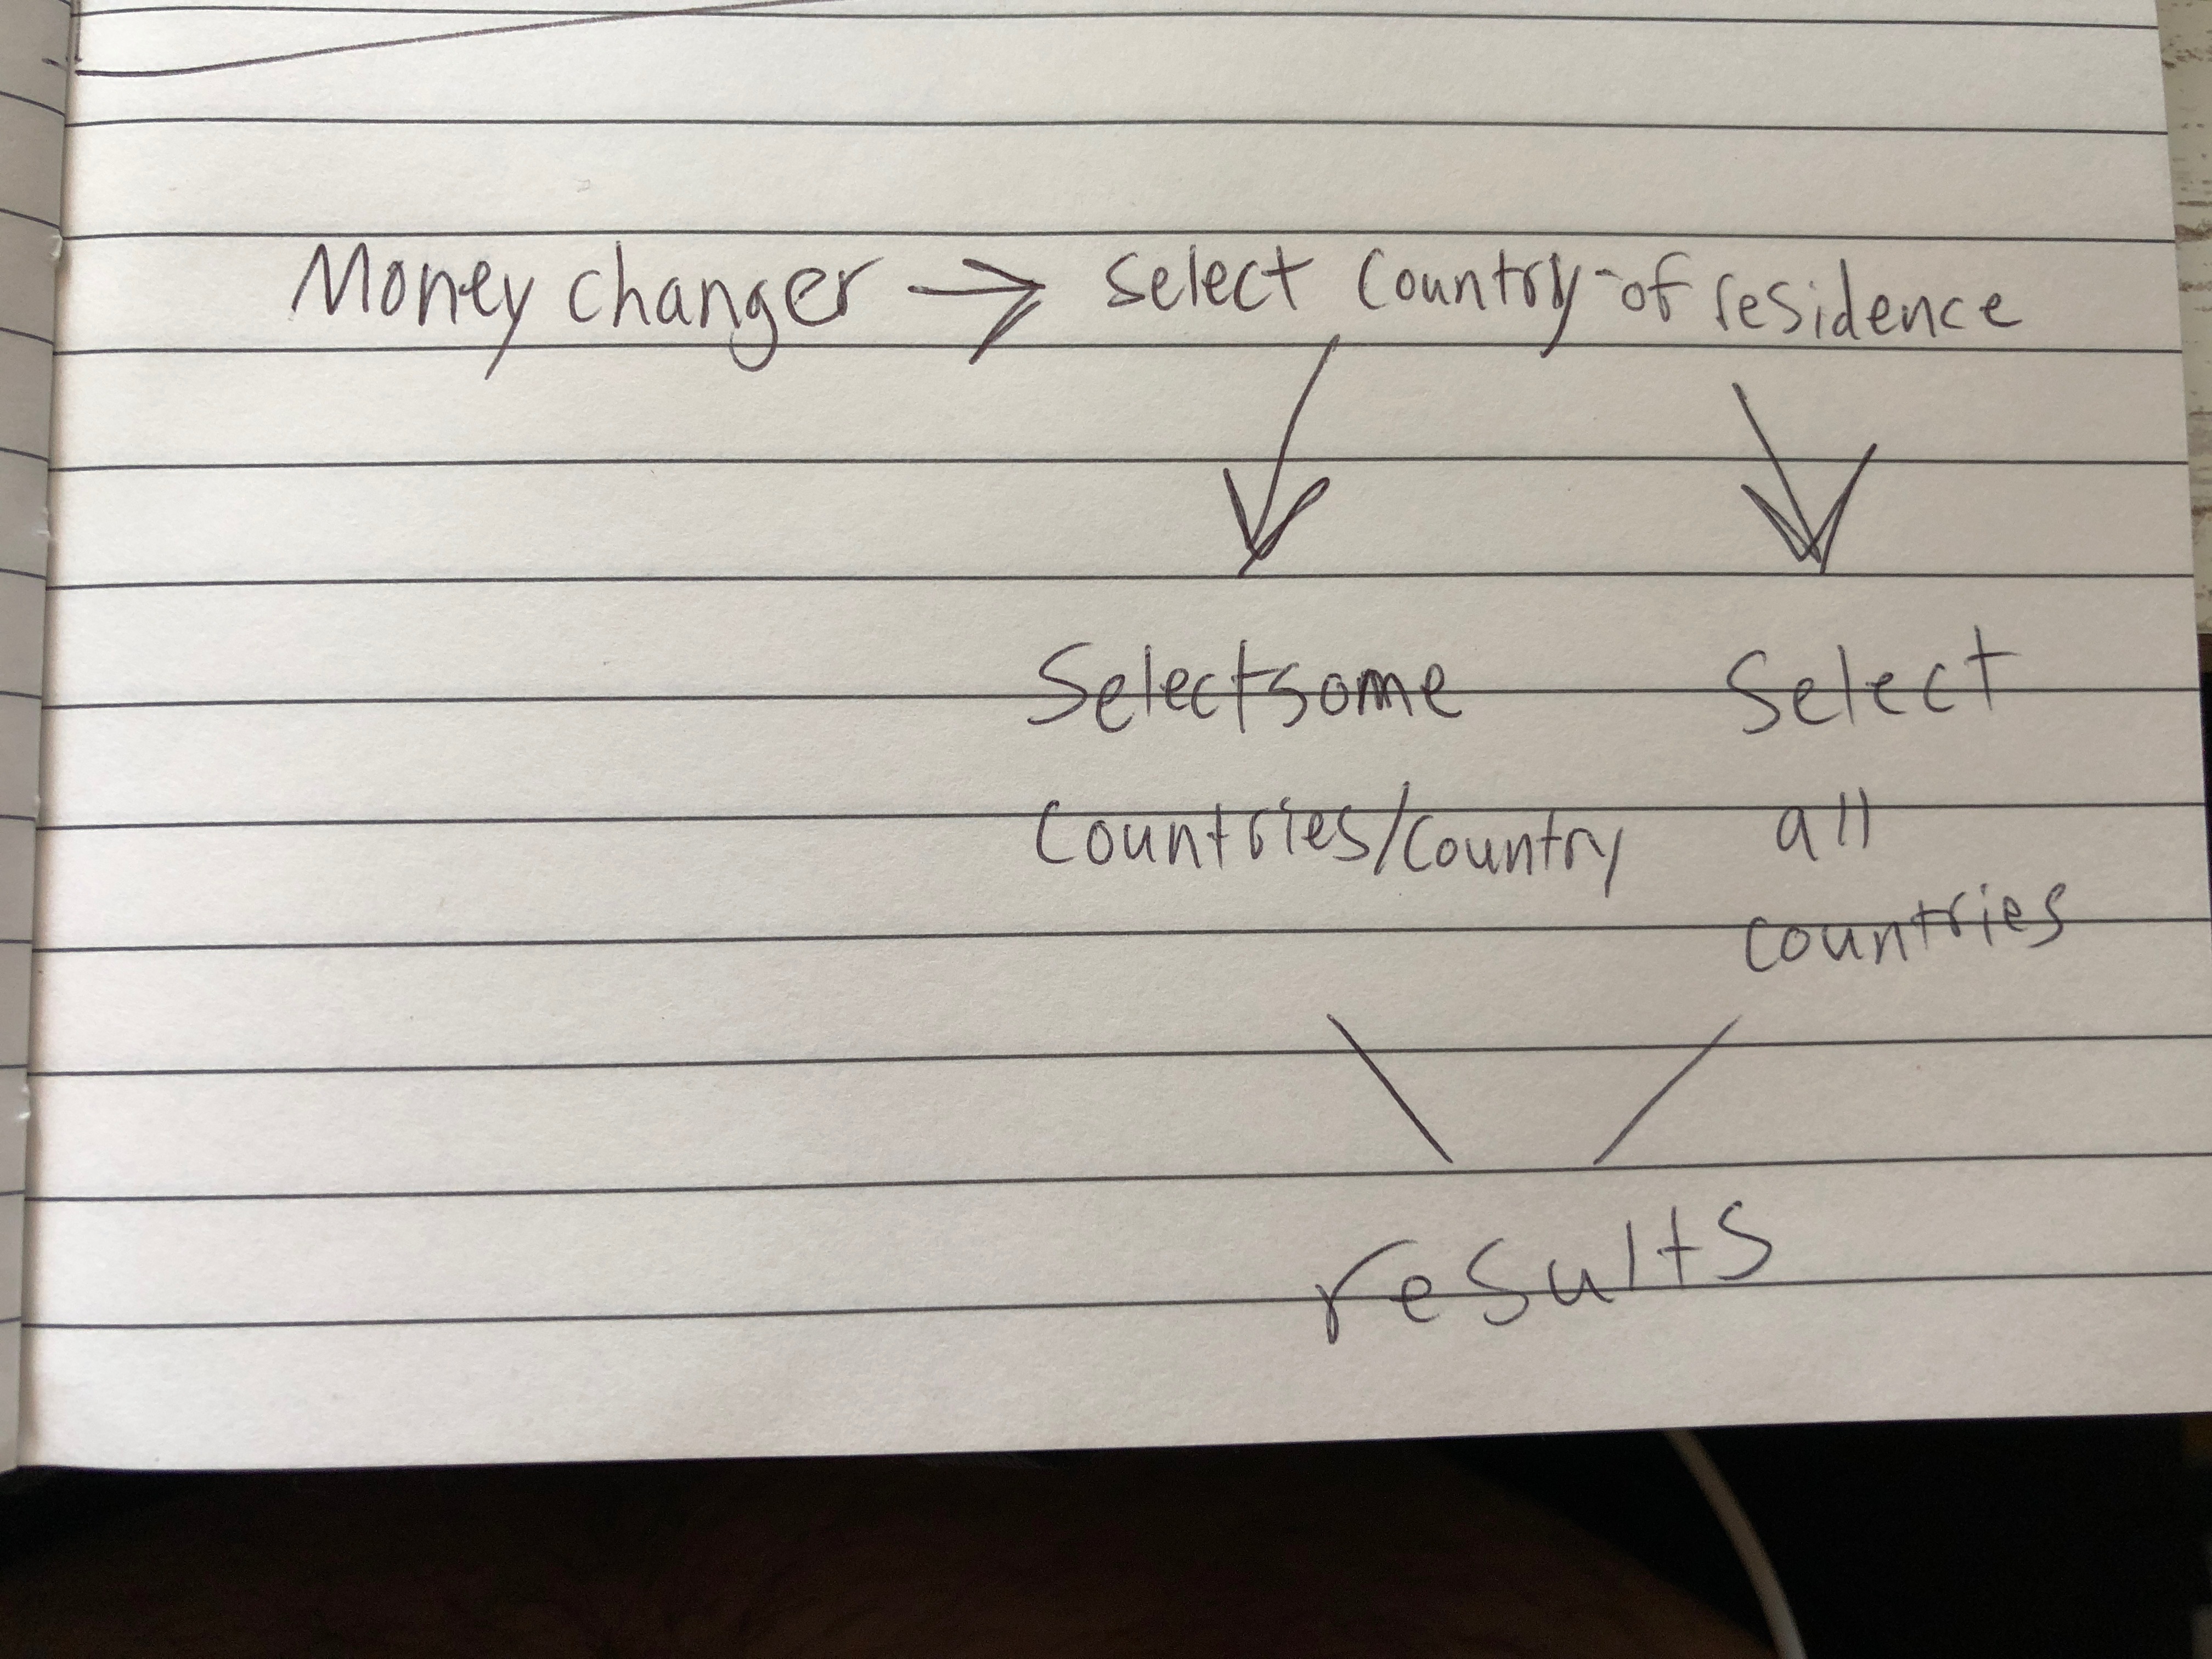 Money changer → select country-of residence
Select some Select
countries/country all
countries
results